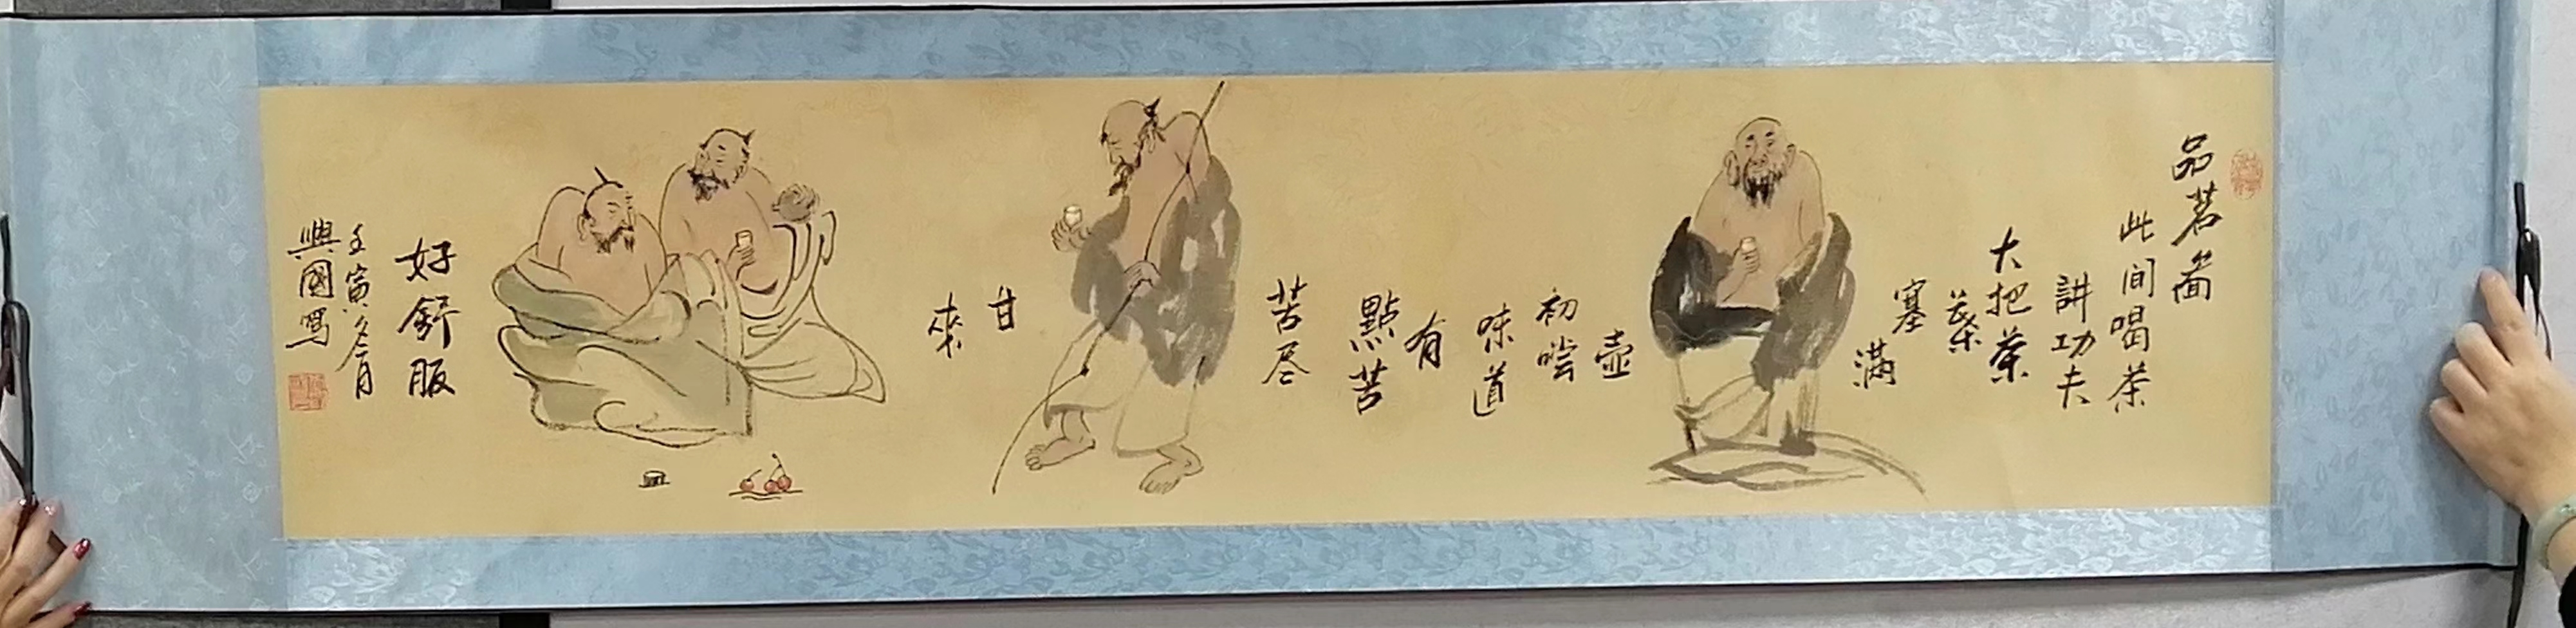 品茗啚
此间喝茶
讲功夫
大把茶
葉
塞
滿
壺
初嚐
味道
有
點苦
苦尽
甘
來
好舒服
壬寅冬月
興國寫